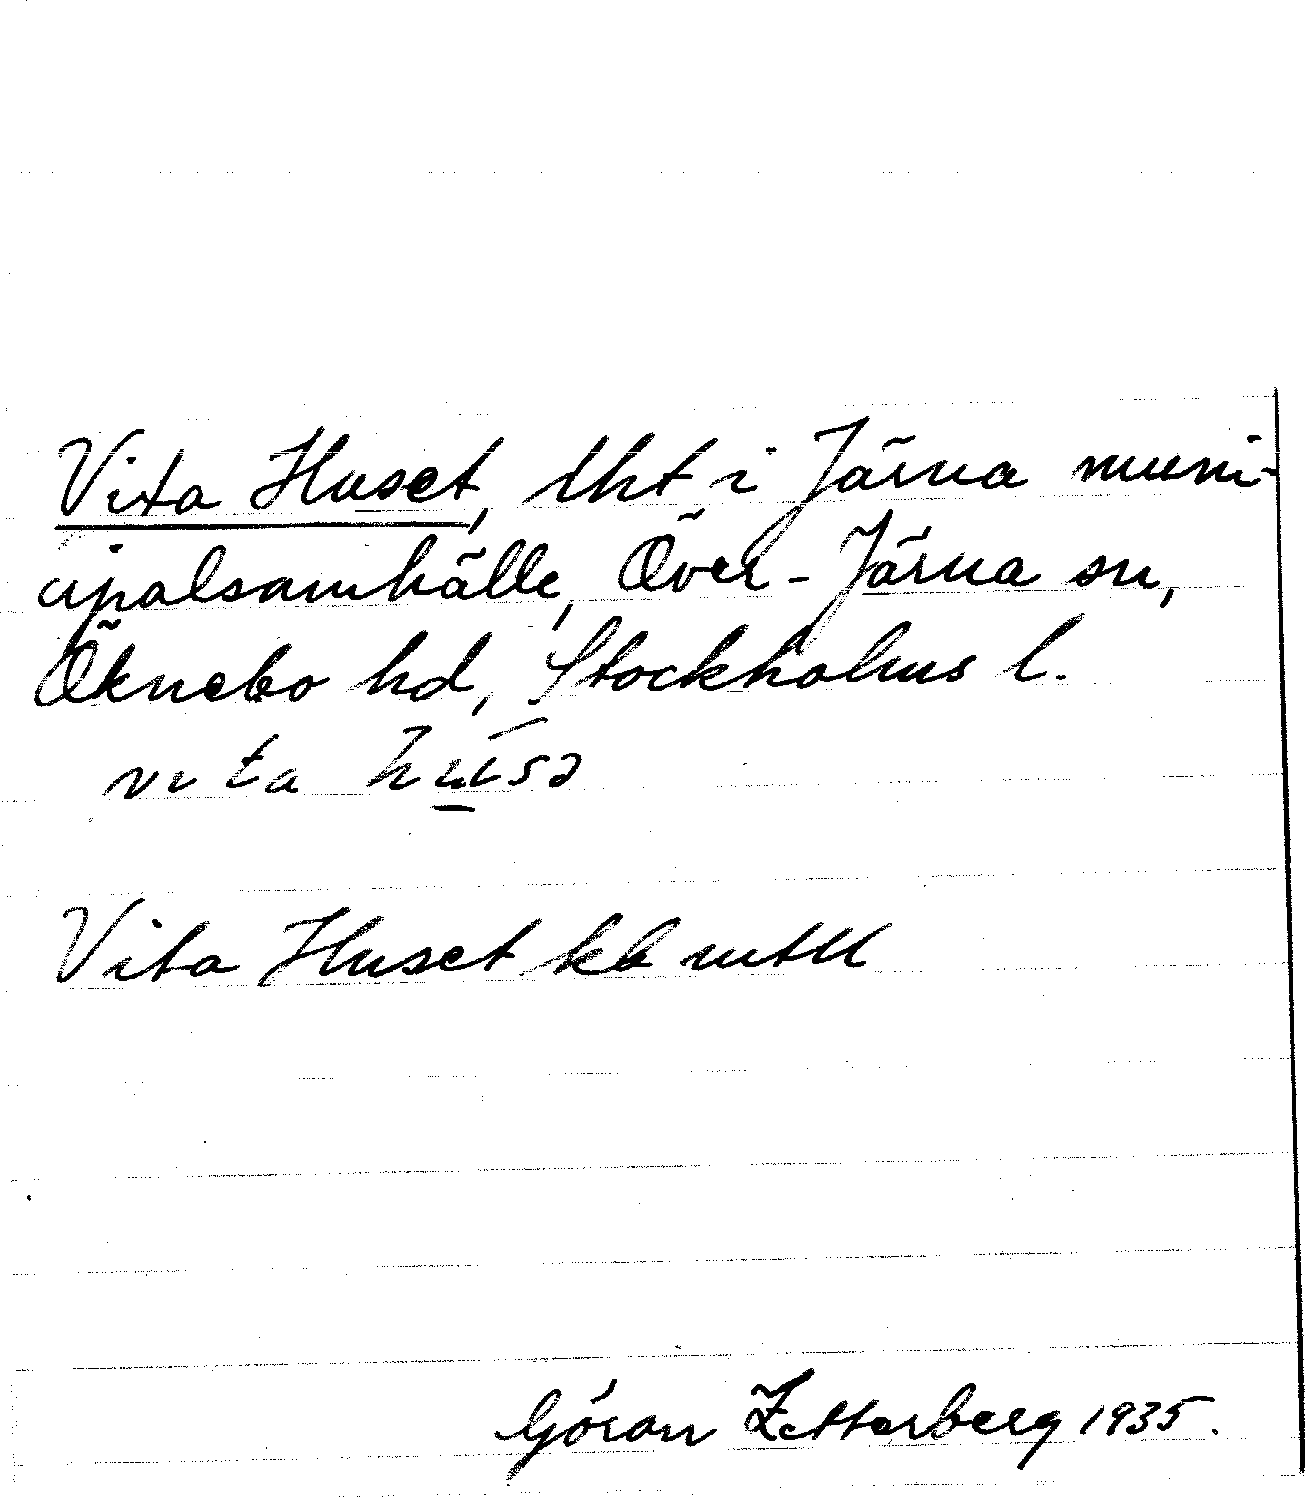 Vita Huset, lht i Järna muni-
cipalsamhälle, Över-Järna sn,
Öknebo hd, Stockholms l.
vita húsə
Vita Huset kb mtll
Göran Zetterberg 1935.